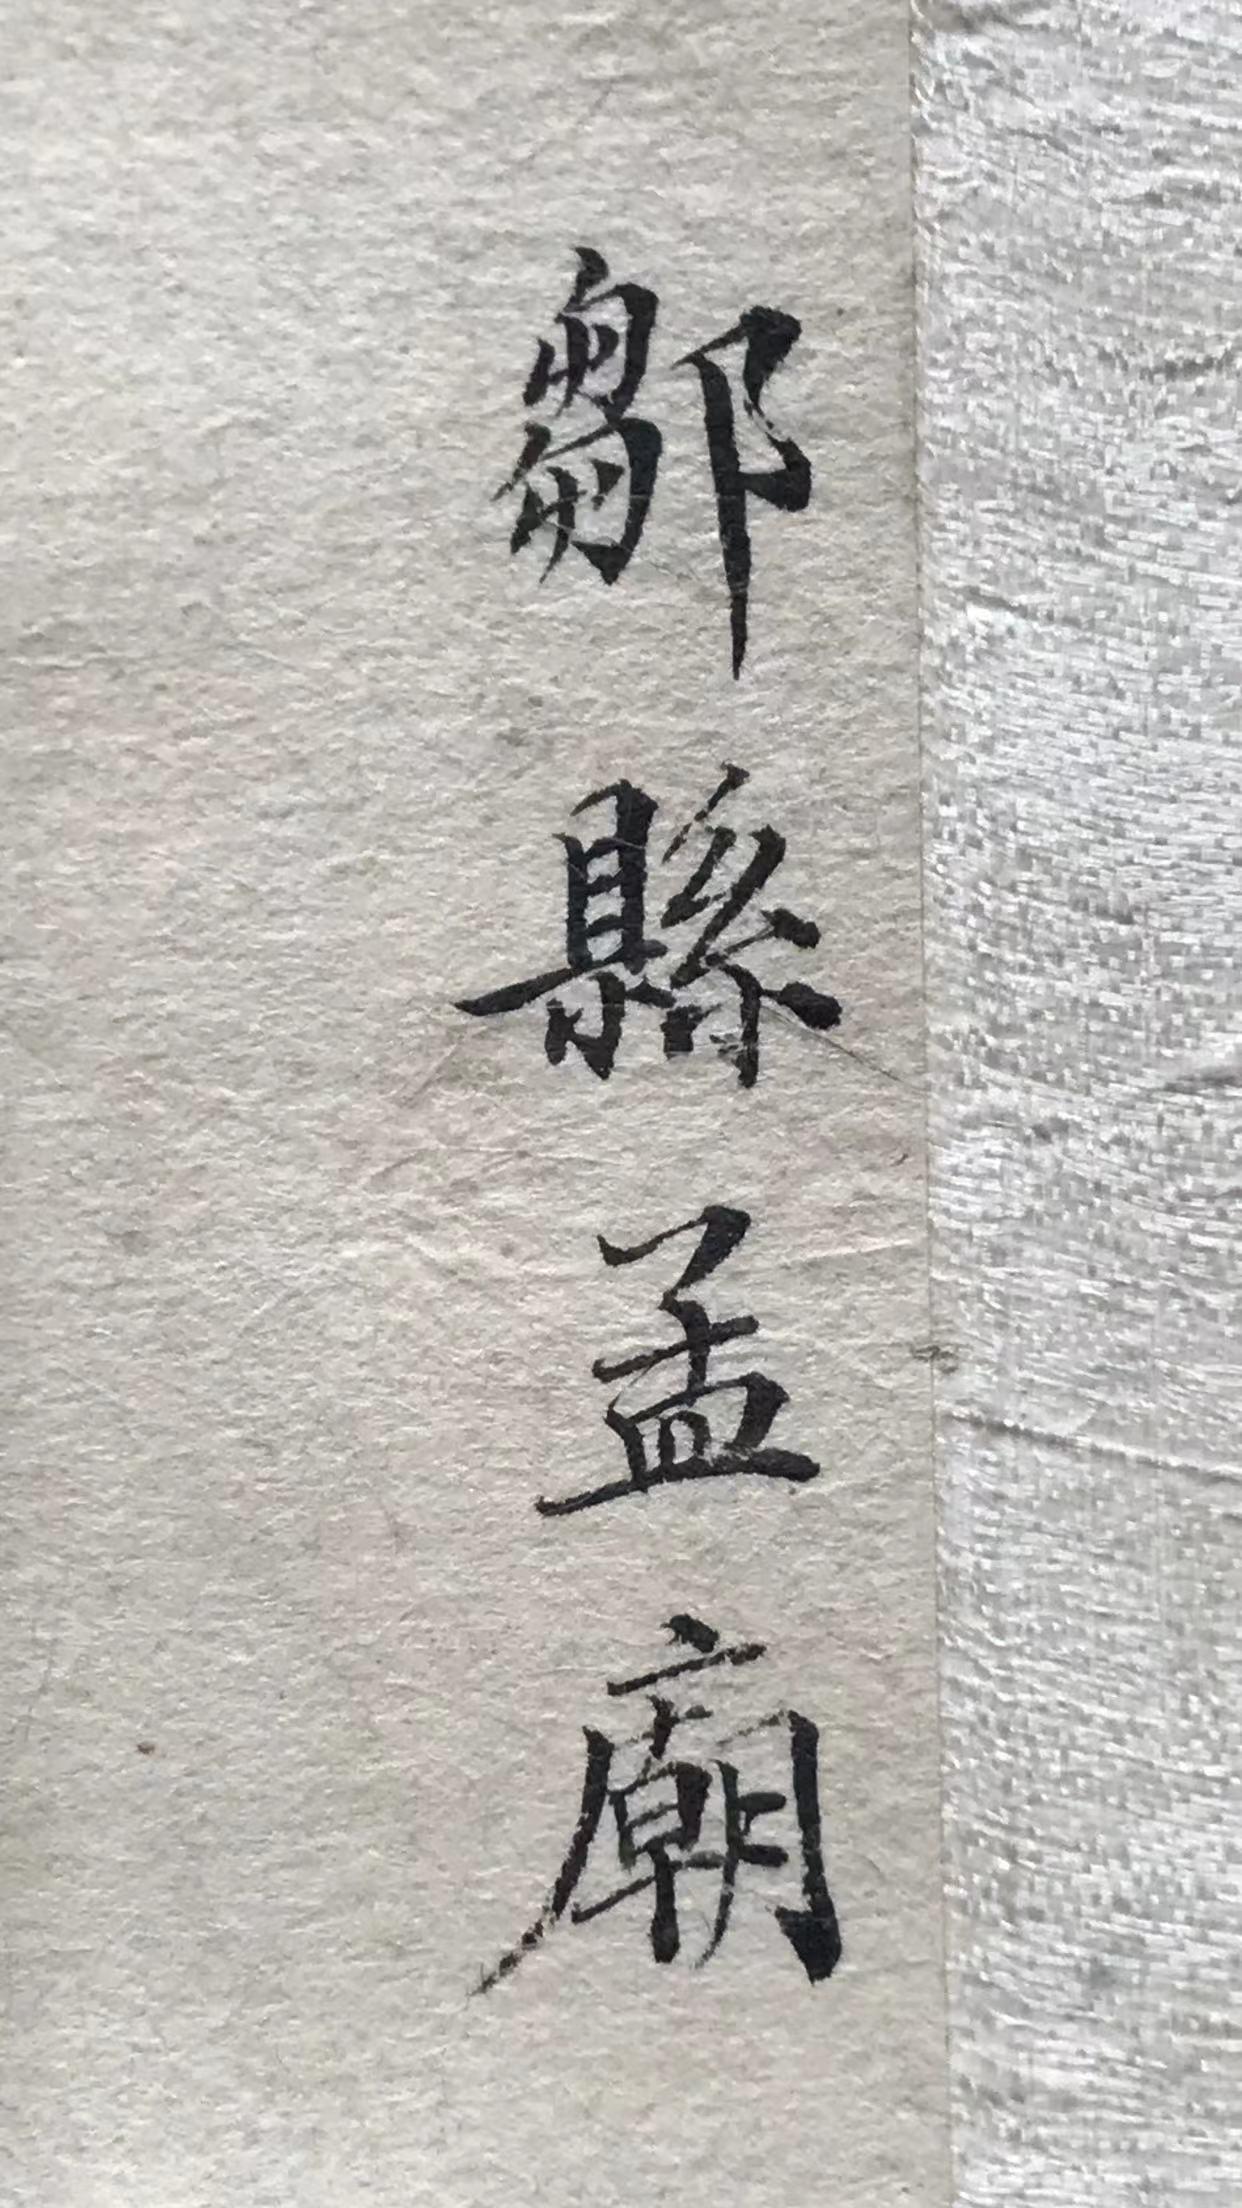 鄒縣孟廟